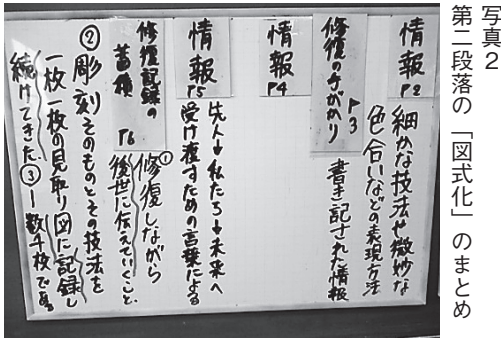 写真2
第二段落の「図式化」のまとめ
情報
P2
細かな技法や微妙な
色合いなどの表現方法
修復の手がかり
P3
書き記された情報
情報
P4
情報
P5
先人→私たち→未来へ
受け渡すための言葉による
修復記録の
蓄積
P6
①修復しながら
後世に伝えていくこと。
②彫刻そのものとその技法を
一枚一枚の見取り図に記録し
続けてきた。③ー数千枚である